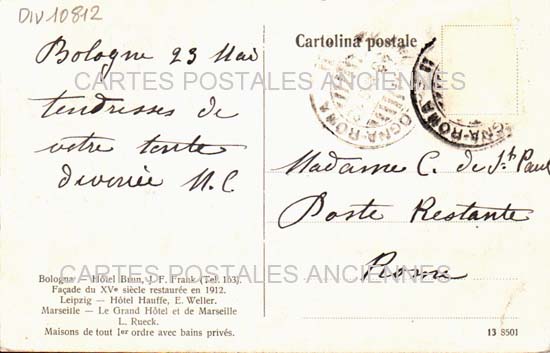 DIV10812
Bologne 23 Mai
tendresses de
votre tante
M. C
Cartolina postale
Madame C. de St Paul
Poste Restante
Rome
CARTES POSTALES ANCIENNES
CARTES POSTALES ANCIENNES
Bologna — Hôtel Brun, J. F. Frank (Tel. 163).
Façade du XVe siècle restaurée en 1912.
Leipzig — Hôtel Hauffe, E. Weller.
Marseille — Le Grand Hôtel et de Marseille
L. Rueck.
Maisons de tout 1er ordre avec bains privés.
13 8501